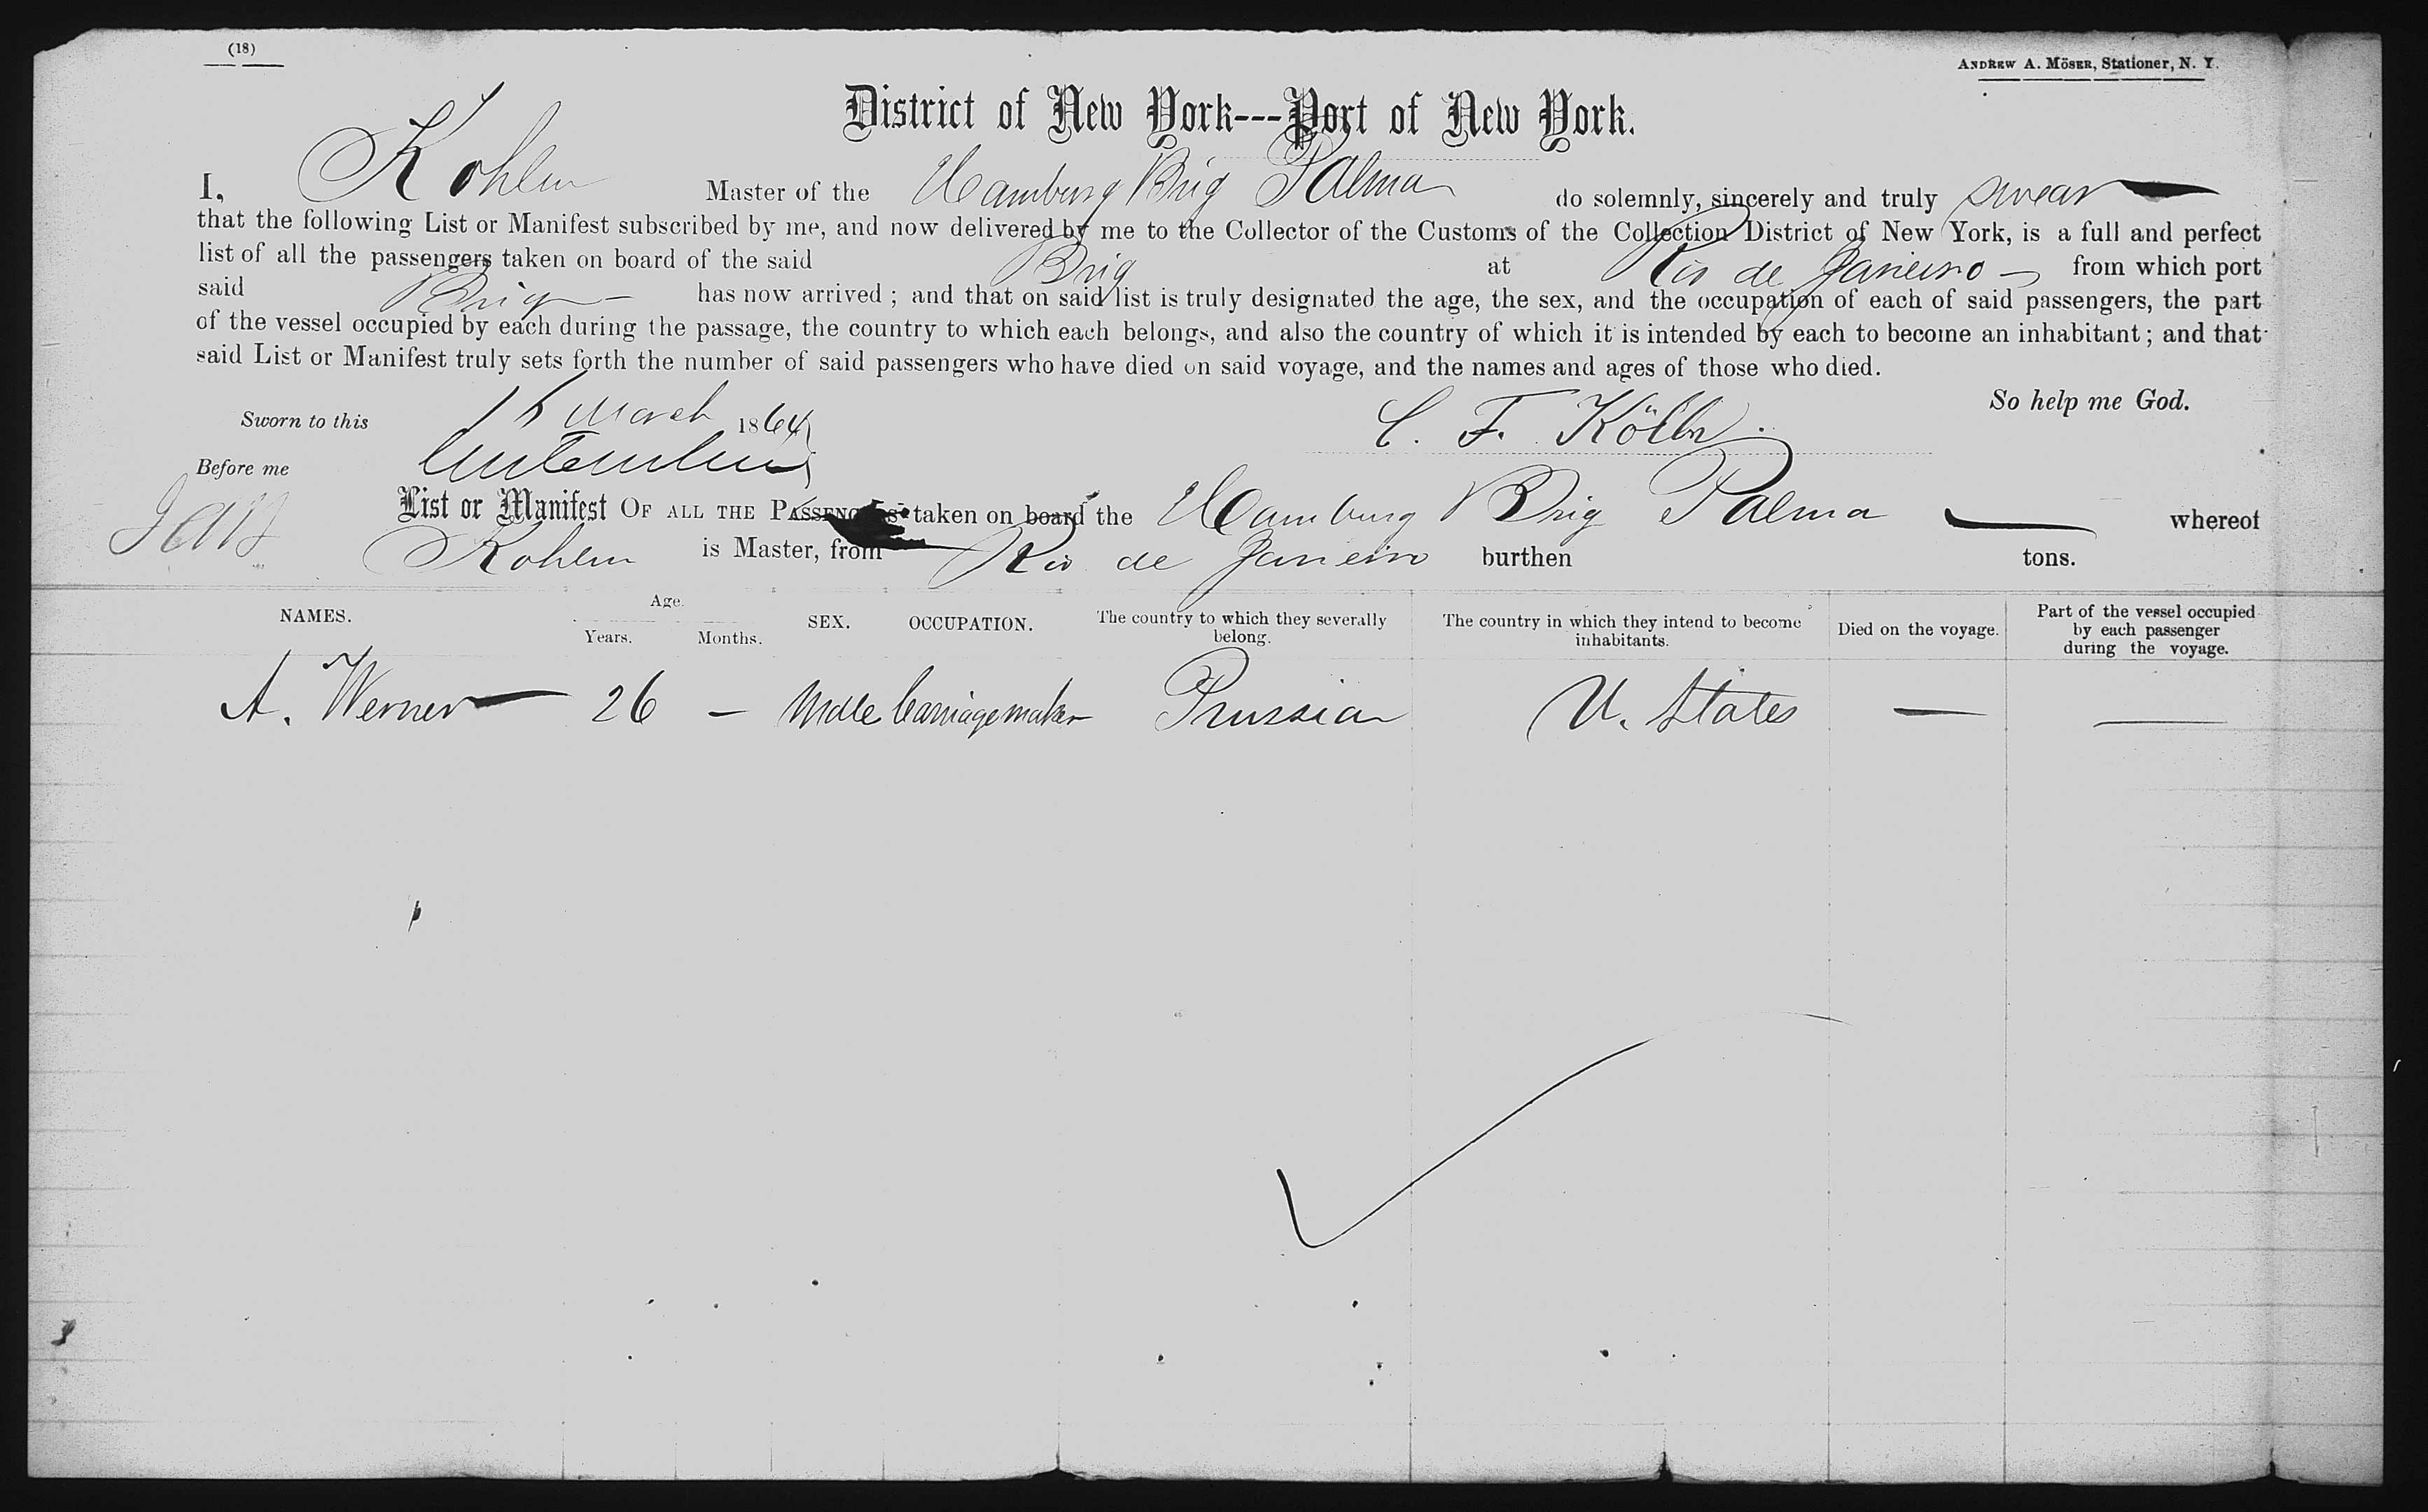 (18)
ANDREW A. MÖSER, Stationer, N. Y.
District of New York---Port of New York.
I, Kohler Master of the Hamburg Brig Palma do solemnly, sincerely and truly swear
that the following List or Manifest subscribed by me, and now delivered by me to the Collector of the Customs of the Collection District of New York, is a full and perfect
list of all the passengers taken on board of the said Brig at Rio de Janeiro from which port
said Brig has now arrived; and that on said list is truly designated the age, the sex, and the occupation of each of said passengers, the part
of the vessel occupied by each during the passage, the country to which each belongs, and also the country of which it is intended by each to become an inhabitant; and that
said List or Manifest truly sets forth the number of said passengers who have died on said voyage, and the names and ages of those who died.
So help me God.
Sworn to this March 1864
C. F. Köller
Before me
List or Manifest OF ALL THE PASSENGERS taken on board the Hamburg Brig Palma whereof
Kohler is Master, from Rio de Janeiro burthen tons.
NAMES. Age. Years. Months. SEX. OCCUPATION. The country to which they severally belong. The country in which they intend to become inhabitants. Died on the voyage. Part of the vessel occupied by each passenger during the voyage.
A. Werner 26 — Male Carriagemaker Prussian U. States — —